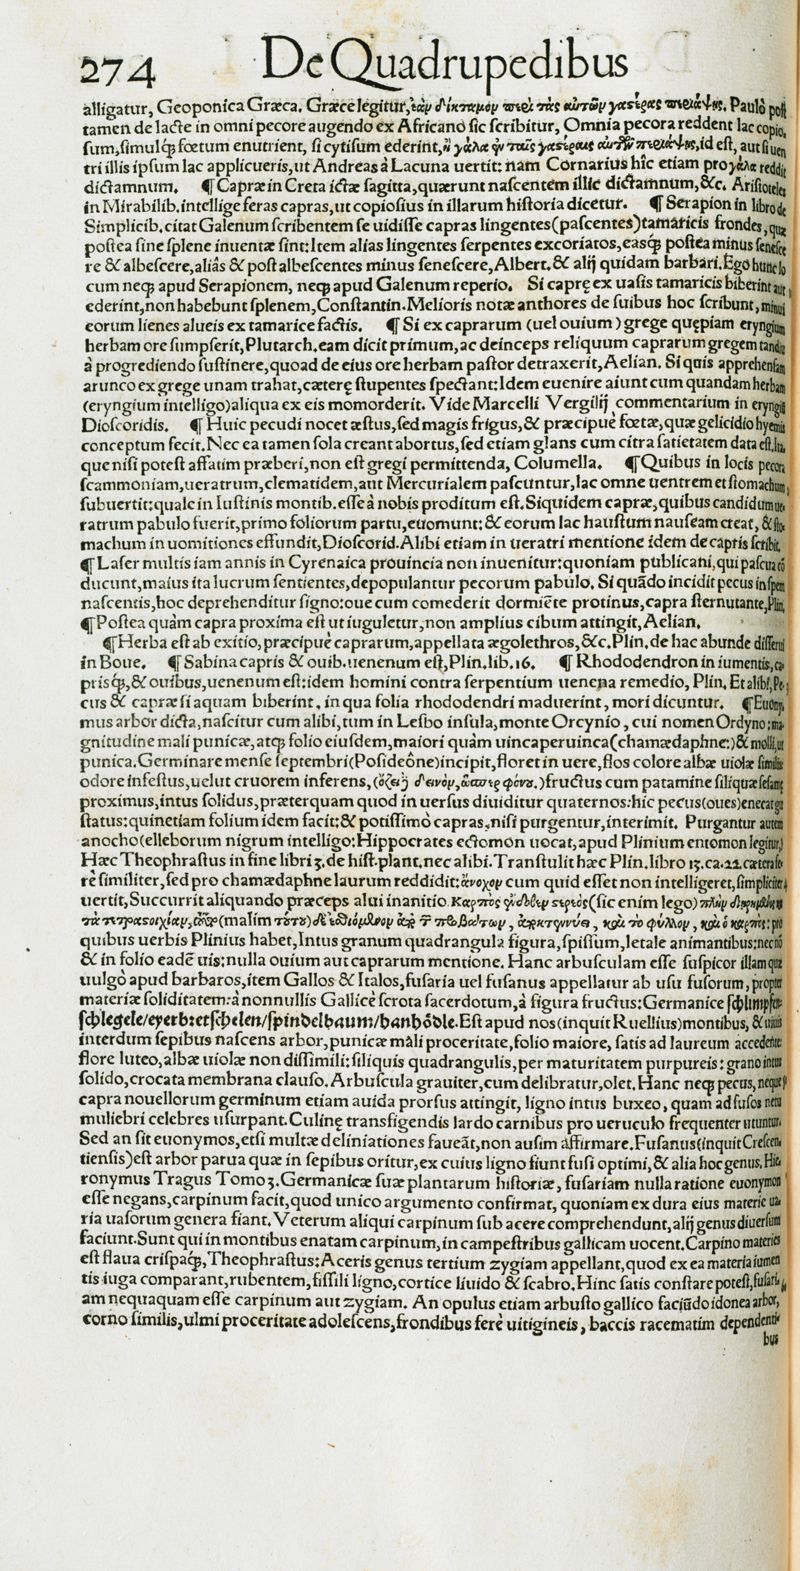 274 De Quadrupedibus
alligatur, Geoponica Græca. Græce legitur, ἐὰν δίκταμον περὶ τὰς αὐτῶν γαστέρας περιάψῃς. Paulò post
tamen de lacte in omni pecore augendo ex Africano sic scribitur, Omnia pecora reddent lac copio,
sum, simulq́; fœtum enutrient, si cytisum ederint, ἢ γάλα ἐν ταῖς γαστέραις αὐτῶν περιάψῃς, id est, aut si uen
tri illis ipsum lac applicueris, ut Andreas à Lacuna uertit: nam Cornarius hîc etiam pro γάλα reddit
dictamnum. ¶ Capræ in Creta ictæ sagitta, quærunt nascentem illic dictamnum, &c. Aristoteles
in Mirabilib. intellige feras capras, ut copiosius in illarum historia dicetur. ¶ Serapion in libro de
Simplicib. citat Galenum scribentem se uidisse capras lingentes (pascentes) tamaricis frondes, quæ
postea sine splene inuentæ sint: Item alias lingentes serpentes excoriatos, easq́; postea minus senesce
re & albescere, aliâs & post albescentes minus senescere, Albert. & alij quidam barbari. Ego hunc lo
cum neq; apud Serapionem, neq; apud Galenum reperio. Si caprę ex uasis tamaricis biberint aut
ederint, non habebunt splenem, Constantin. Melioris notæ anthores de suibus hoc scribunt, minui
eorum lienes alueis ex tamarice factis. ¶ Si ex caprarum (uel ouium) grege quępiam eryngium
herbam ore sumpserit, Plutarch. eam dicit primum, ac deinceps reliquum caprarum gregem tandiu
à progrediendo sustinere, quoad de eius ore herbam pastor detraxerit, Aelian. Si quis apprehensam
arunco ex grege unam trahat, cæterę stupentes spectant: Idem euenire aiunt cum quandam herbam
(eryngium intelligo) aliqua ex eis momorderit. Vide Marcelli Vergilij commentarium in eryngiū
Dioscoridis. ¶ Huic pecudi nocet æstus, sed magis frigus, & præcipuè fœtæ, quæ gelicidio hyemis
conceptum fecit. Nec ea tamen sola creant abortus, sed etiam glans cum citra satietatem data est. Ita
que nisi potest affatim præberi, non est gregi permittenda, Columella. ¶ Quibus in locis pecora
scammoniam, ueratrum, clematidem, aut Mercurialem pascuntur, lac omne uentrem et stomachum
subuertit: quale in Iustinis montib. esse à nobis proditum est. Siquidem capræ, quibus candidum ue,
ratrum pabulo fuerit, primo foliorum partu, euomunt: & eorum lac haustum nauseam creat, & sto
machum in uomitiones effundit, Dioscorid. Alibi etiam in ueratri mentione idem de capris scribit.
¶ Laser multis iam annis in Cyrenaica prouincia non inuenitur: quoniam publicani, qui pascua cō
ducunt, maius ita lucrum sentientes, depopulantur pecorum pabulo. Si quādo incidit pecus in spem
nascentis, hoc deprehenditur signo: oue cum comederit dormiēte protinus, capra sternutante, Plin.
¶ Postea quàm capra proxima est ut iuguletur, non amplius cibum attingit, Aelian.
¶ Herba est ab exitio, præcipuè caprarum, appellata ægolethros, &c. Plin. de hac abunde disserui
in Boue. ¶ Sabina capris & ouib. uenenum est, Plin. lib. 16. ¶ Rhododendron in iumentis, ca,
prisq́;, & ouibus, uenenum est: idem homini contra serpentium uenena remedio, Plin. Et alibi, Pe,
cus & capræ si aquam biberint, in qua folia rhododendri maduerint, mori dicuntur. ¶ Euony,
mus arbor dicta, nascitur cum alibi, tum in Lesbo insula, monte Orcynio, cui nomen Ordyno: ma,
gnitudine mali punicæ, atq́; folio eiusdem, maiori quàm uincaperuinca (chamædaphne:) & molli, ut
punica. Germinare mense septembri (Posideône) incipit, floret in uere, flos colore albæ uiolæ similis
odore infestus, uelut cruorem inferens, (ὄζει ϳ δεινὸν, ὥσπερ φόνου.) fructus cum patamine siliquæ sesamę
proximus, intus solidus, præterquam quod in uersus diuiditur quaternos: hic pecus (oues) enecat gu
status: quinetiam folium idem facit: & potissimò capras, nisi purgentur, interimit. Purgantur autem
anocho (elleborum nigrum intelligo: Hippocrates ectomon uocat, apud Plinium entomon legitur.)
Hæc Theophrastus in fine libri 3. de hist. plant. nec alibi. Transtulit hæc Plin. libro 13. ca. 22. cætera fe,
rè similiter, sed pro chamædaphne laurum reddidit: ἄνοχον cum quid esset non intelligeret, simpliciter
uertit, Succurrit aliquando præceps alui inanitio. Καρπὸς ἔνδοθεν στερεὸς (sic enim lego) πλὴν διῃρημένος
(malim τοῦτο) καὶ τὸ φύλλον, καὶ ὁ καρπός: pro
quibus uerbis Plinius habet, Intus granum quadrangula figura, spissum, letale animantibus: nec nō
& in folio eadē uis: nulla ouium aut caprarum mentione. Hanc arbusculam esse suspicor illam quæ
uulgò apud barbaros, item Gallos & Italos, fusaria uel fusanus appellatur ab usu fusorum, propter
materiæ soliditatem: à nonnullis Gallicè scrota sacerdotum, à figura fructus: Germanice schlimpfen,
schlegele/eyerbretschelen/spindelbaum/hanhödle. Est apud nos (inquit Ruellius) montibus, & uiuis
interdum sepibus nascens arbor, punicæ mali proceritate, folio maiore, satis ad laureum accedente:
flore luteo, albæ uiolæ non dissimili: siliquis quadrangulis, per maturitatem purpureis: grano intus
solido, crocata membrana clauso. Arbuscula grauiter, cum delibratur, olet. Hanc neq; pecus, neque
capra nouellorum germinum etiam auida prorsus attingit, ligno intus buxeo, quam ad fusos netu
muliebri celebres usurpant. Culinę transfigendis lardo carnibus pro ueruculo frequenter utuntur.
Sed an sit euonymos, etsi multæ deliniationes faueāt, non ausim affirmare. Fusanus (inquit Crescen,
tiensis) est arbor parua quæ in sepibus oritur, ex cuius ligno fiunt fusi optimi, & alia hoc genus. Hie,
ronymus Tragus Tomo 3. Germanicæ suæ plantarum historiæ, fusariam nulla ratione euonymon
esse negans, carpinum facit, quod unico argumento confirmat, quoniam ex dura eius materie ua,
ria uasorum genera fiant. Veterum aliqui carpinum sub acere comprehendunt, alij genus diuersum
faciunt. Sunt qui in montibus enatam carpinum, in campestribus gallicam uocent. Carpino materies
est flaua crispaq́;, Theophrastus: Aceris genus tertium zygiam appellant, quod ex ea materia iumen
tis iuga comparant, rubentem, fissili ligno, cortice liuido & scabro. Hinc satis constare potest, fusari,
am nequaquam esse carpinum aut zygiam. An opulus etiam arbusto gallico faciūdo idonea arbor,
corno similis, ulmi proceritate adolescens, frondibus ferè uitigineis, baccis racematim dependenti,
bus